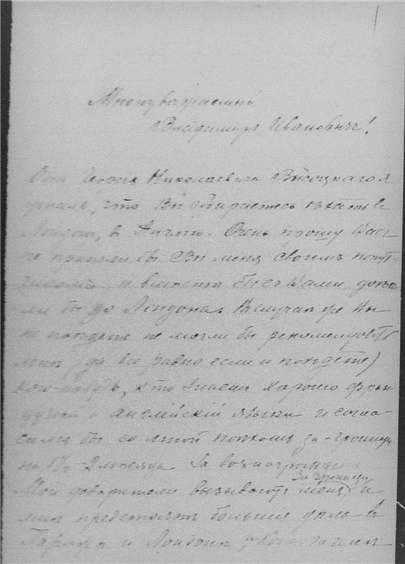 Многоуважаемый
Владимиръ Ивановичъ!
Отъ Николаевича Высоцкаго я
узналъ, что Вы собираетесь ѣхать въ
Лондонъ, въ Англію. Очень прошу Васъ
не приняли бы Вы меня своимъ попут-
чикомъ, и вмѣстѣ бы съ Вами доѣха-
ли бы до Лондона. Въ случаѣ же Вы
не поѣдете не могли бы рекомендовать
мнѣ (да все равно если и поѣдете)
кого-нибудь, кто знаетъ хорошо фран-
цузскій и Англійскій языки и согла-
сился бы со мной поѣхать за-границу
на 1½-2 мѣсяца за вознагражденіе
Мои довѣрители вызываютъ меня за границу и
мнѣ предстоятъ большія дѣла въ
Парижѣ и Лондонѣ,